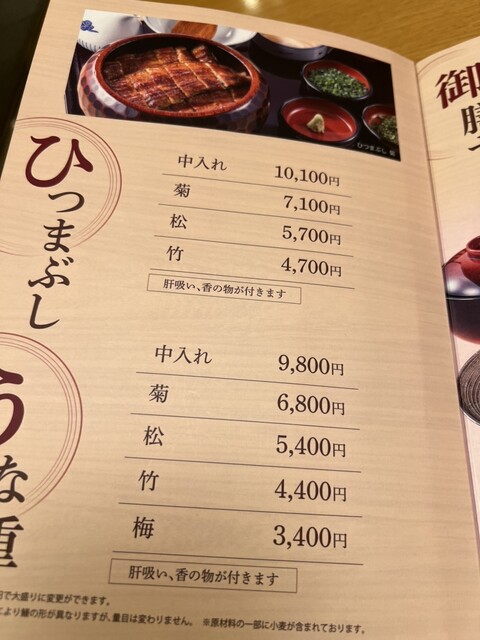 ひつまぶし 菊
ひつまぶし
中入れ 10,100円
菊 7,100円
松 5,700円
竹 4,700円
肝吸い、香の物が付きます
うな重
中入れ 9,800円
菊 6,800円
松 5,400円
竹 4,400円
梅 3,400円
肝吸い、香の物が付きます
円で大盛りに変更ができます。
により鰻の形が異なりますが、量目は変わりません。 ※原材料の一部に小麦が含まれております。
御
膳